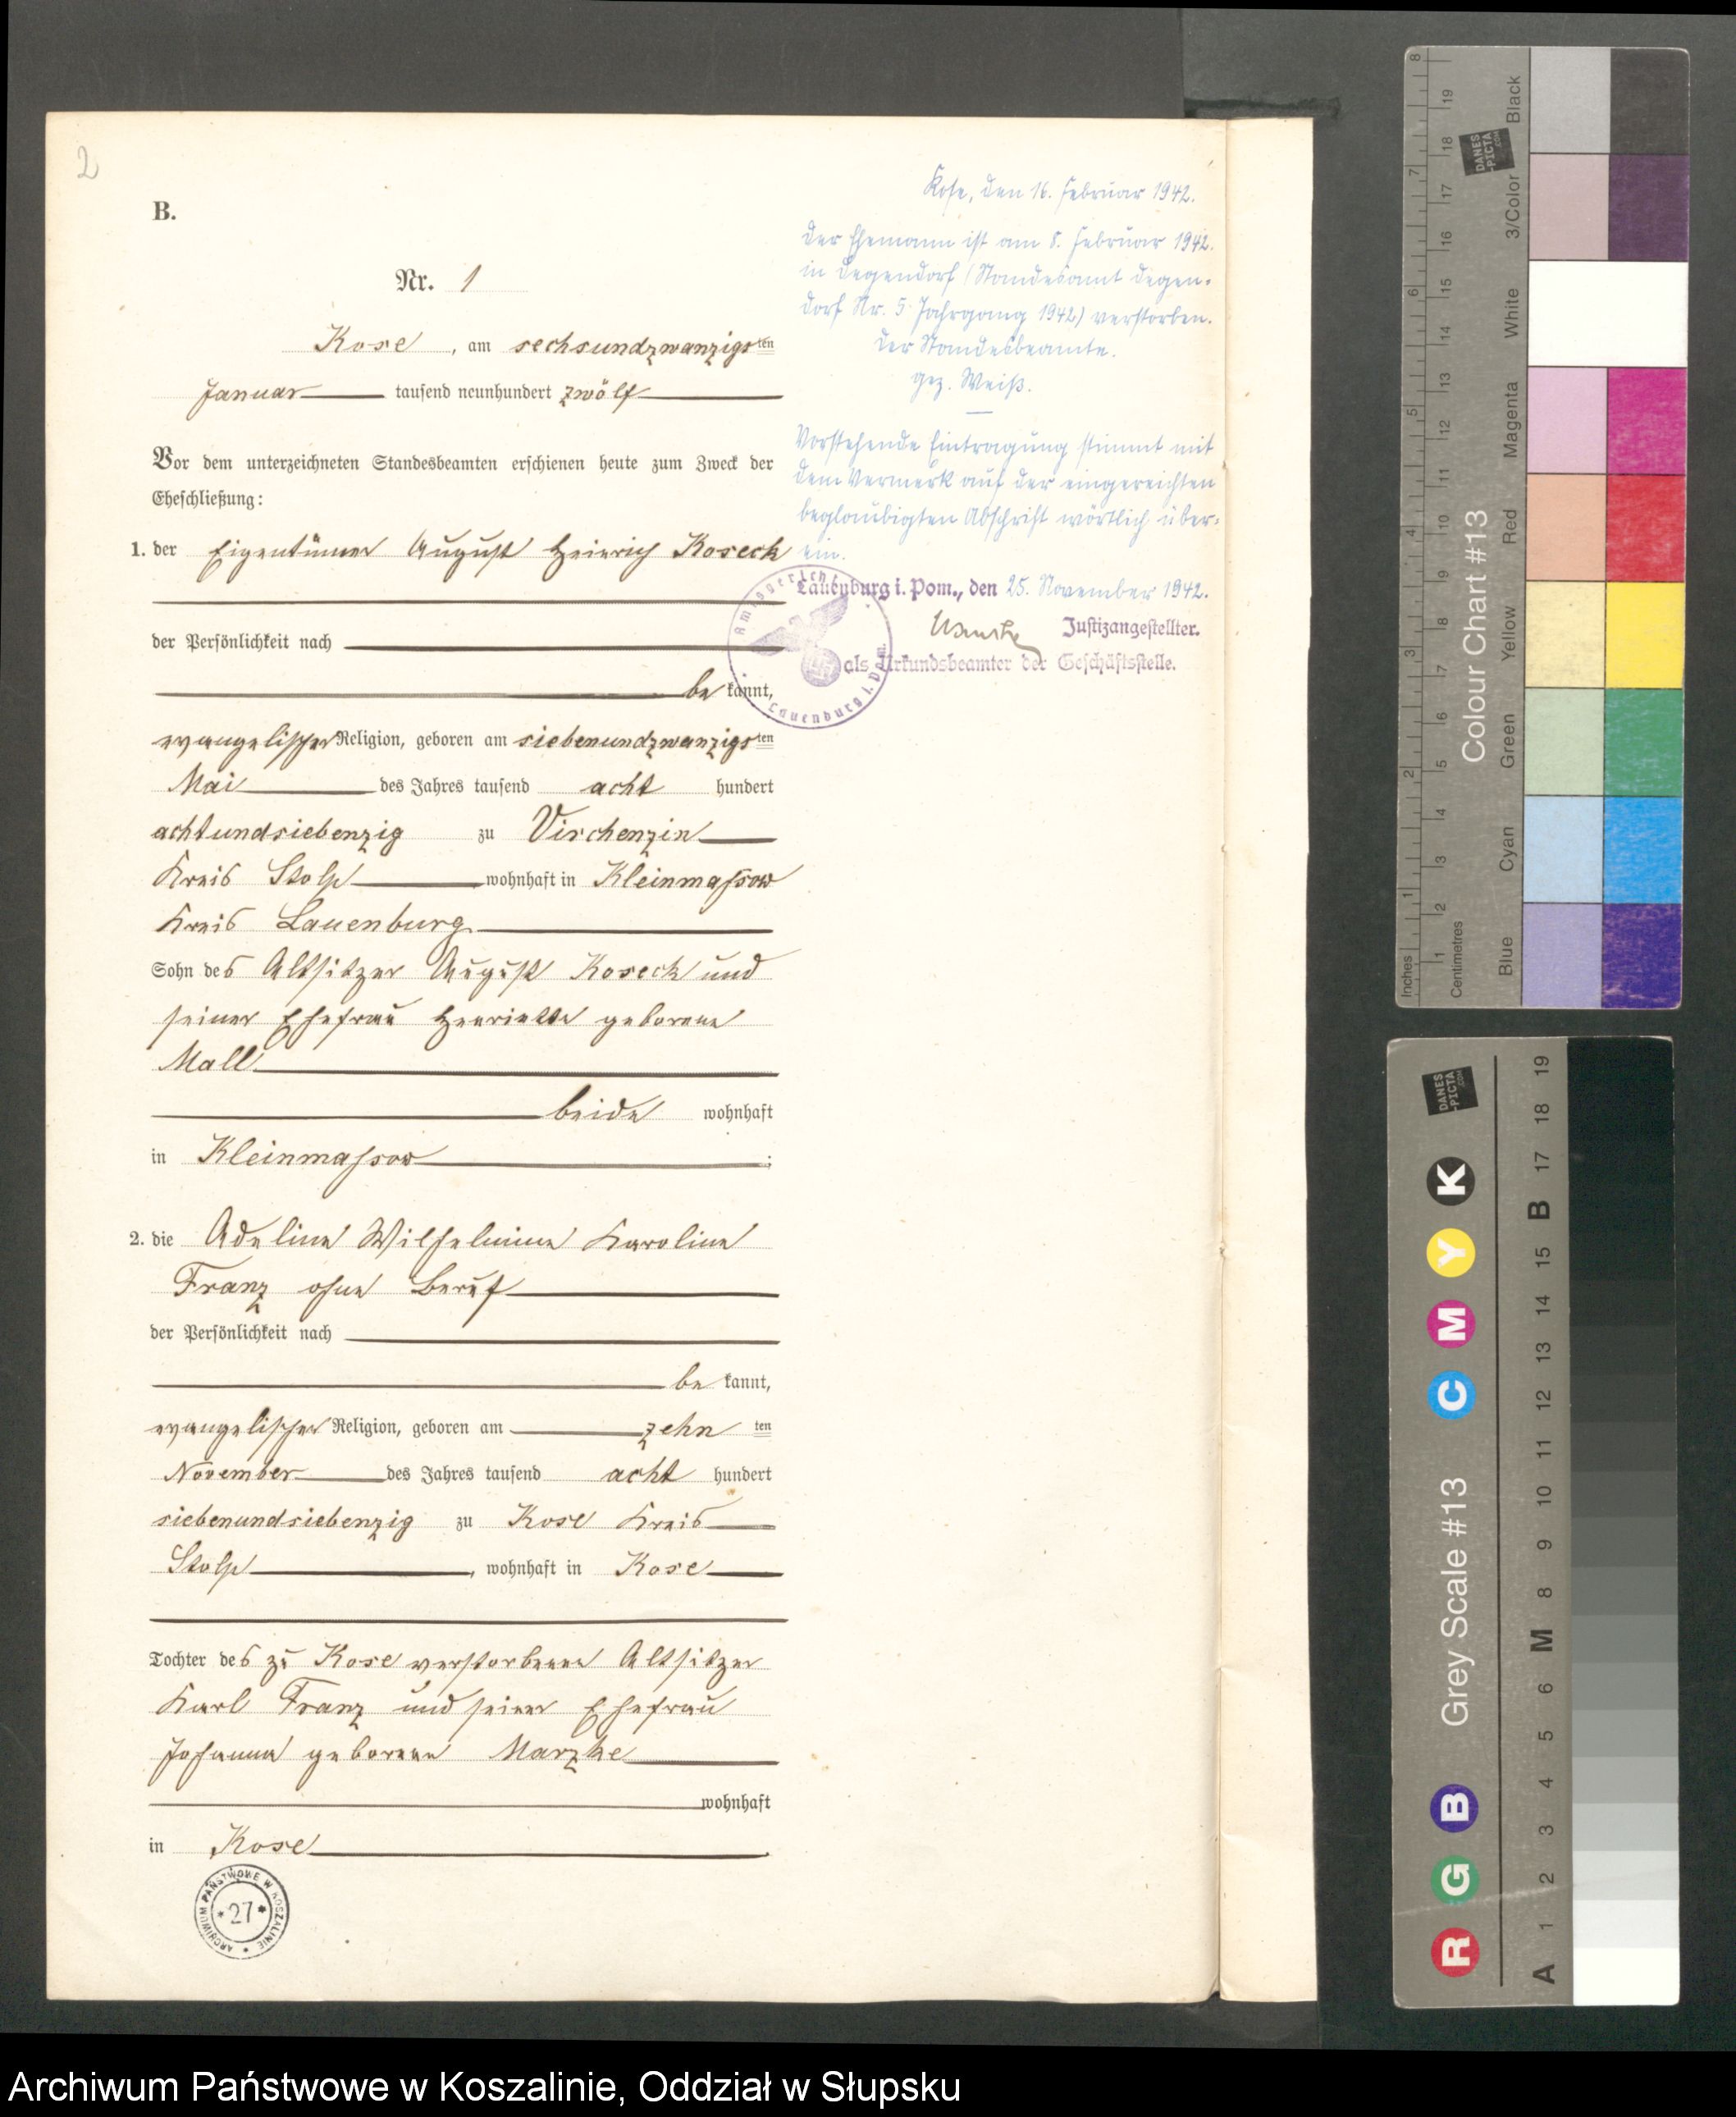 2
B.
Nr. 1
Kose, am sechsundzwanzigsten
Januar tausend neunhundert zwölf
Vor dem unterzeichneten Standesbeamten erschienen heute zum Zweck der
Eheschließung:
1. der Eigentümer August Heinrich Koseck
der Persönlichkeit nach
bekannt,
evangelischer Religion, geboren am siebenundzwanzigsten
Mai des Jahres tausend acht hundert
achtundsiebenzig zu Virchenzin
Kreis Stolp wohnhaft in Kleinmassow
Kreis Lauenburg
Sohn des Altsitzer August Koseck und
seiner Ehefrau Henriette geborene
Mall
beide wohnhaft
in Kleinmassow;
2. die Adeline Wilhelmine Karoline
Franz ohne Beruf
der Persönlichkeit nach
bekannt,
evangelischer Religion, geboren am zehnten
November des Jahres tausend acht hundert
siebenundsiebenzig zu Kose Kreis
Stolp, wohnhaft in Kose
Tochter des zu Kose verstorbenen Altsitzer
Karl Franz und seiner Ehefrau
Johanna geborenen Marzke
wohnhaft
in Kose.
Kose, den 16. Februar 1942.
Der Ehemann ist am 8. Februar 1942.
in Degendorf (Standesamt Degen-
dorf Nr. 5 Jahrgang 1942) verstorben.
Der Standesbeamte.
gez. Weiß.
Vorstehende Eintragung stimmt mit
dem Vermerk auf der eingereichten
beglaubigten Abschrift wörtlich über-
ein.
Lauenburg i. Pom., den 25. November 1942.
Justizangestellter.
als Urkundsbeamter der Geschäftsstelle.
Amtsgericht
Lauenburg i. Pom.
ARCHIWUM PAŃSTWOWE W KOSZALINIE
*27*
Inches 1 2 3 4 5 6 7 8
Centimetres 1 2 3 4 5 6 7 8 9 10 11 12 13 14 15 16 17 18 19
Colour Chart #13
Blue Cyan Green Yellow Red Magenta White 3/Color Black
DANES
-PICTA
.COM
Grey Scale #13
R G B C M Y K
A 1 2 3 4 5 6 M 8 9 10 11 12 13 14 15 B 17 18 19
DANES
-PICTA
.COM
Archiwum Państwowe w Koszalinie, Oddział w Słupsku